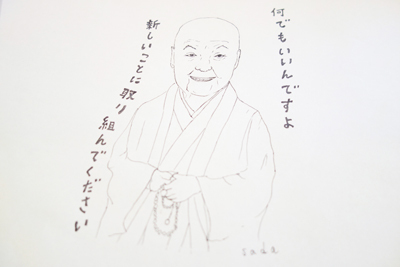 何でもいいんですよ
新しいことに取り組んでください
sada